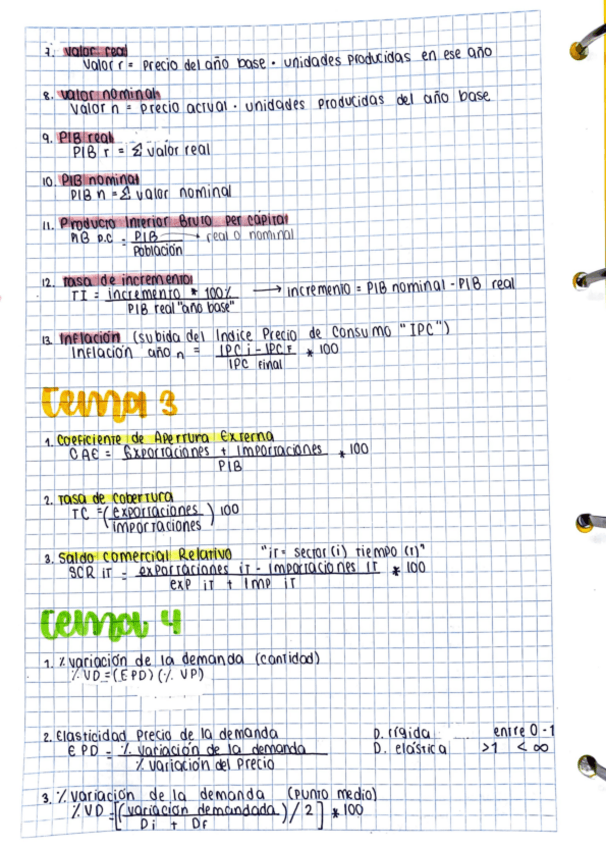 7. valor real
valor r = precio del año base · unidades producidas en ese año
8. valor nominal
valor n = precio actual · unidades producidas del año base
9. PIB real
PIB r = Σ valor real
10. PIB nominal
PIB n = Σ valor nominal
11. Producto Interior Bruto per cápital
PIB p.c = PIB → real o nominal
Población
12. tasa de incremento
TI = incremento * 100% → incremento = PIB nominal - PIB real
PIB real "año base"
13. Inflación (subida del Indice Precio de Consumo "IPC")
Inflación año n = IPC i - IPC F * 100
IPC Final
tema 3
1. Coeficiente de Apertura Externa
CAE = Exportaciones + Importaciones * 100
PIB
2. Tasa de cobertura
TC = (exportaciones) 100
importaciones
3. Saldo comercial Relativo "it = sector (i) tiempo (t)"
SCR iT = exportaciones iT - Importaciones iT * 100
exp iT + Imp iT
tema 4
1. % variación de la demanda (cantidad)
% VD = (EPD) (% VP)
2. Elasticidad Precio de la demanda D. rígida entre 0 - 1
E PD = % variación de la demanda D. elástica >1 < ∞
% variación del Precio
3. % variación de la demanda (punto medio)
% VD = [(variación demandada) / 2] * 100
Di + Df